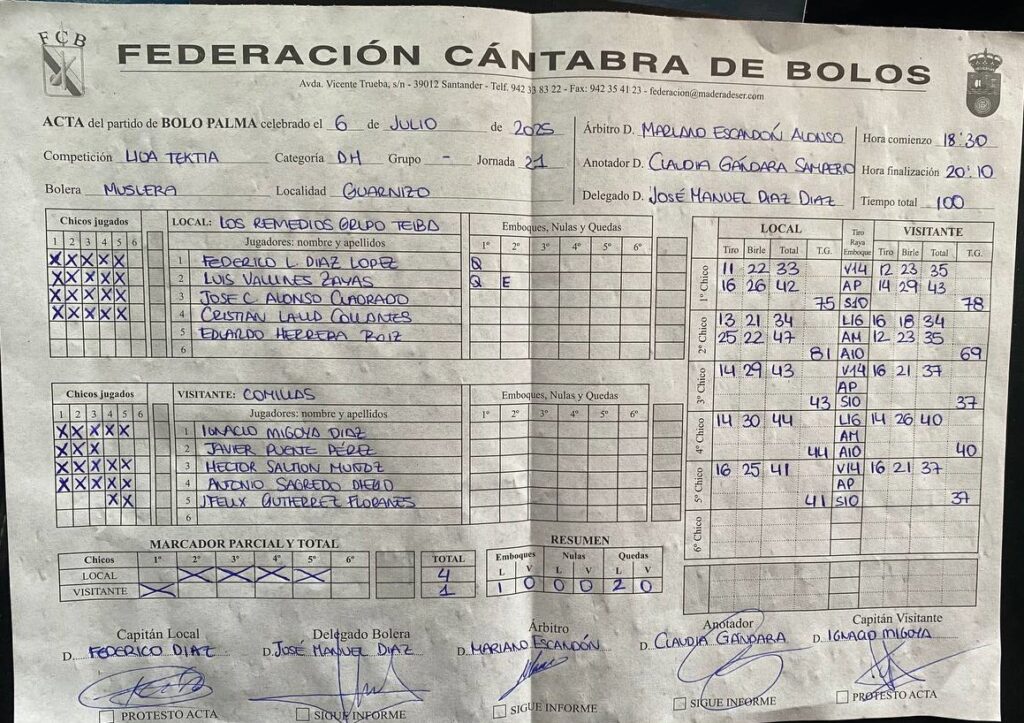 FCB
FEDERACIÓN CÁNTABRA DE BOLOS
Avda. Vicente Trueba, s/n - 39012 Santander - Telf. 942 33 83 22 - Fax: 942 35 41 23 - federacion@maderadeser.com
ACTA del partido de BOLO PALMA celebrado el 6 de JULIO de 2025
Competición LIGA TEKTIA Categoría DH Grupo - Jornada 21
Bolera MUSLERA Localidad GUARNIZO
Árbitro D. MARIANO ESCANDÓN ALONSO Hora comienzo 18:30
Anotador D. CLAUDIA GÁNDARA SAMPERIO Hora finalización 20:10
Delegado D. JOSÉ MANUEL DIAZ DIAZ Tiempo total 100
Chicos jugados LOCAL: LOS REMEDIOS GRUPO TEIBA Emboques, Nulas y Quedas
1 2 3 4 5 6 Jugadores: nombre y apellidos 1º 2º 3º 4º 5º 6º
X X X X X 1 FEDERICO L. DIAZ LOPEZ Q
X X X X X 2 LUIS VALLINES ZAYAS Q E
X X X X X 3 JOSE C ALONSO CUADRADO
X X X X X 4 CRISTIAN LAUD COLLANTES
5 EDUARDO HERRERA RUIZ
6
Chicos jugados VISITANTE: COMILLAS Emboques, Nulas y Quedas
1 2 3 4 5 6 Jugadores: nombre y apellidos 1º 2º 3º 4º 5º 6º
X X X X X 1 IGNACIO MIGOYA DIAZ
X X X 2 JAVIER PUENTE PÉREZ
X X X X X 3 HECTOR SALMON MUÑOZ
X X X X X 4 ANTONIO SAGREDO DIEGO
X X 5 JFELIX GUTIERREZ FLORANES
6
LOCAL Tiro Raya Emboque VISITANTE
Tiro Birle Total T.G. Tiro Birle Total T.G.
1º Chico 11 22 33 V14 12 23 35
16 26 42 AP 14 29 43
75 S10 78
2º Chico 13 21 34 L16 16 18 34
25 22 47 AM 12 23 35
81 A10 69
3º Chico 14 29 43 V14 16 21 37
AP
43 S10 37
4º Chico 14 30 44 L16 14 26 40
AM
44 A10 40
5º Chico 16 25 41 V14 16 21 37
AP
41 S10 37
6º Chico
MARCADOR PARCIAL Y TOTAL
Chicos 1º 2º 3º 4º 5º 6º TOTAL
LOCAL X X X X 4
VISITANTE X 1
RESUMEN
Emboques Nulas Quedas
L V L V L V
1 0 0 0 2 0
Capitán Local Delegado Bolera Árbitro Anotador Capitán Visitante
D. FEDERICO DIAZ D. JOSÉ MANUEL DIAZ D. MARIANO ESCANDÓN D. CLAUDIA GÁNDARA D. IGNACIO MIGOYA
PROTESTO ACTA SIGUE INFORME SIGUE INFORME SIGUE INFORME PROTESTO ACTA